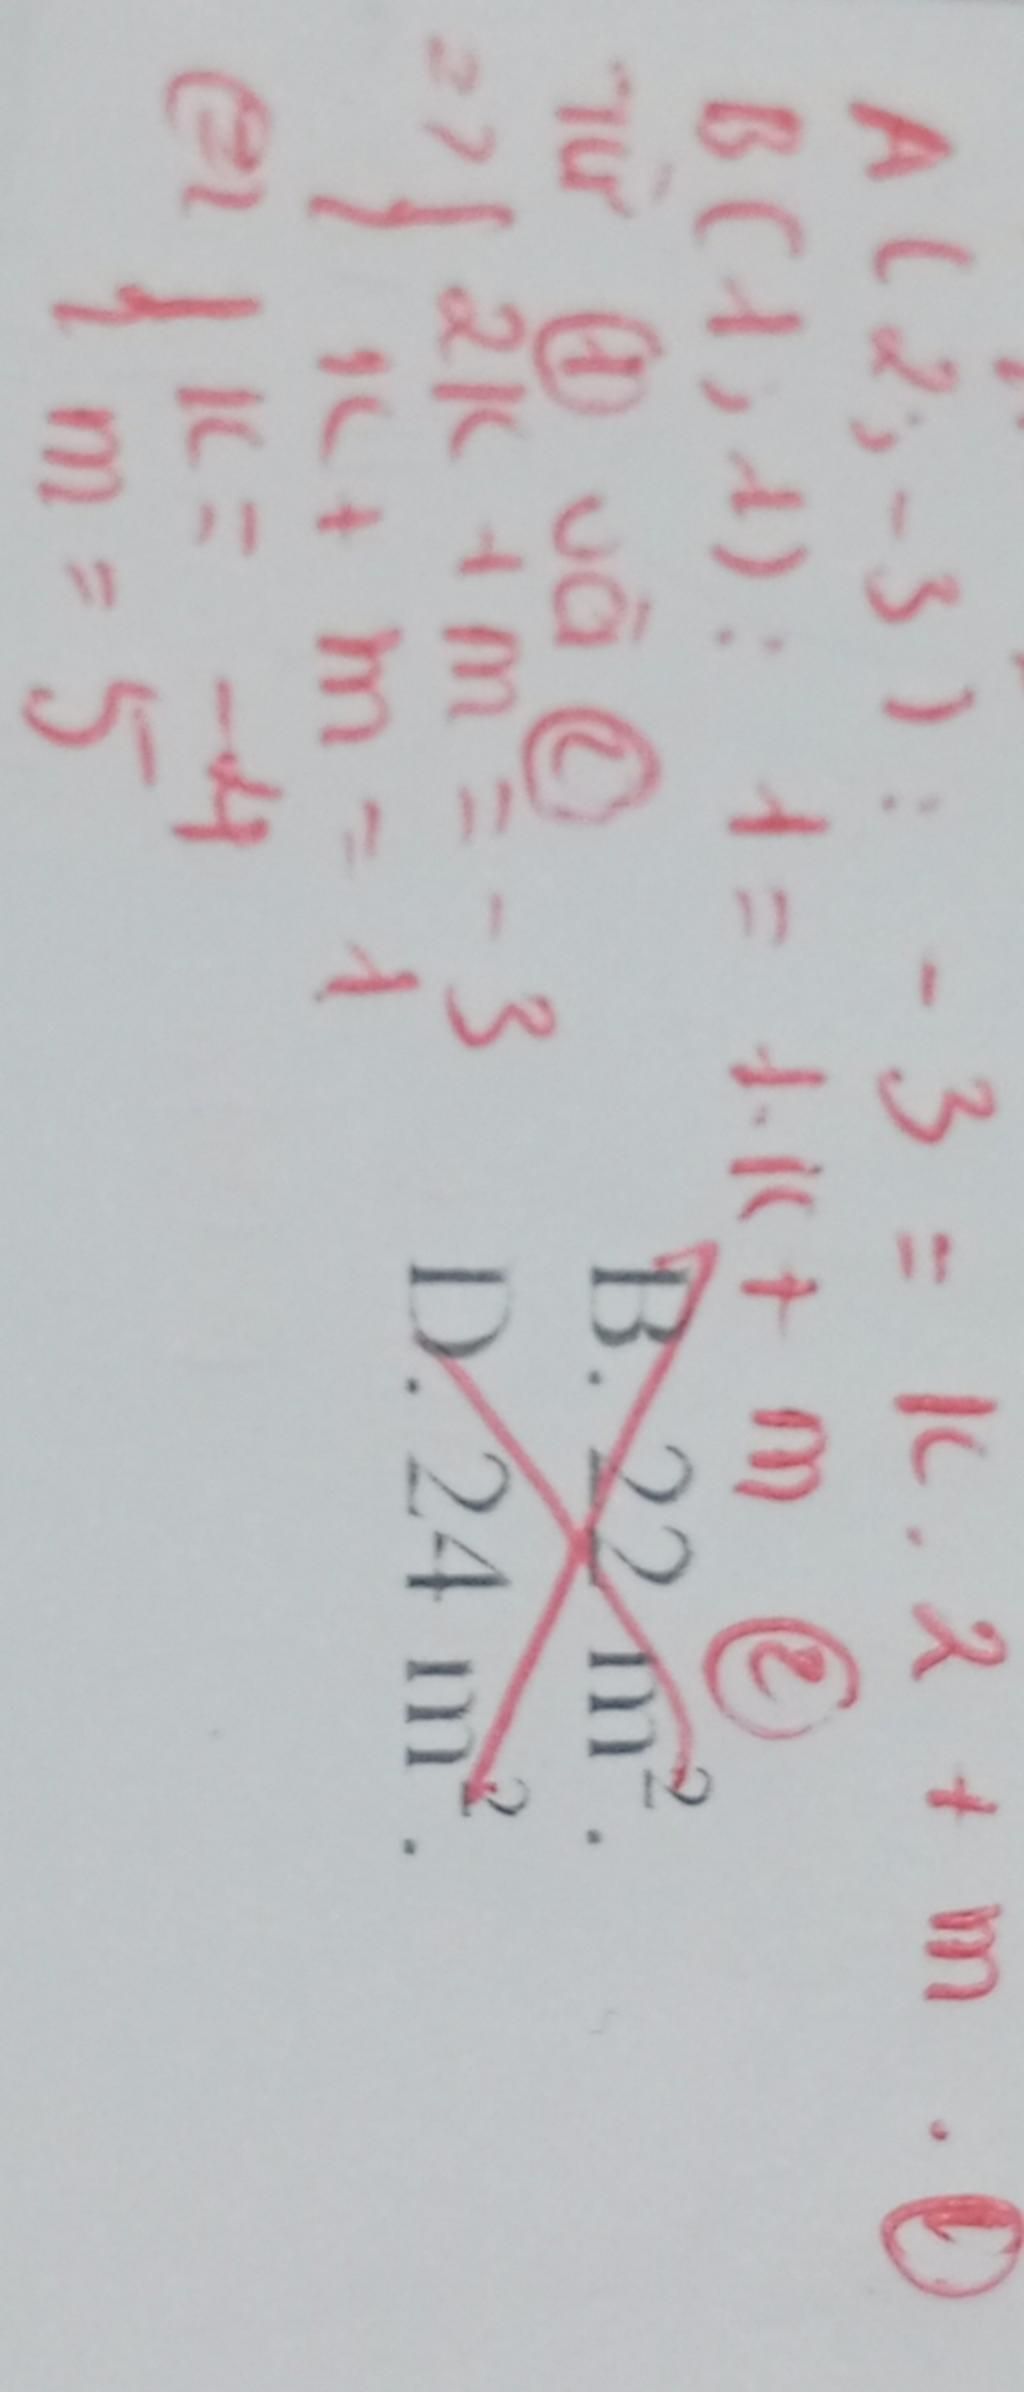 A(2; -3): -3 = k.2 + m. ①
B(1, 1): 1 = 1.k + m ②
Từ ① và ②
=> { 2k + m = -3
k + m = 1
{ k = -4
m = 5
B. 22 m².
D. 24 m².